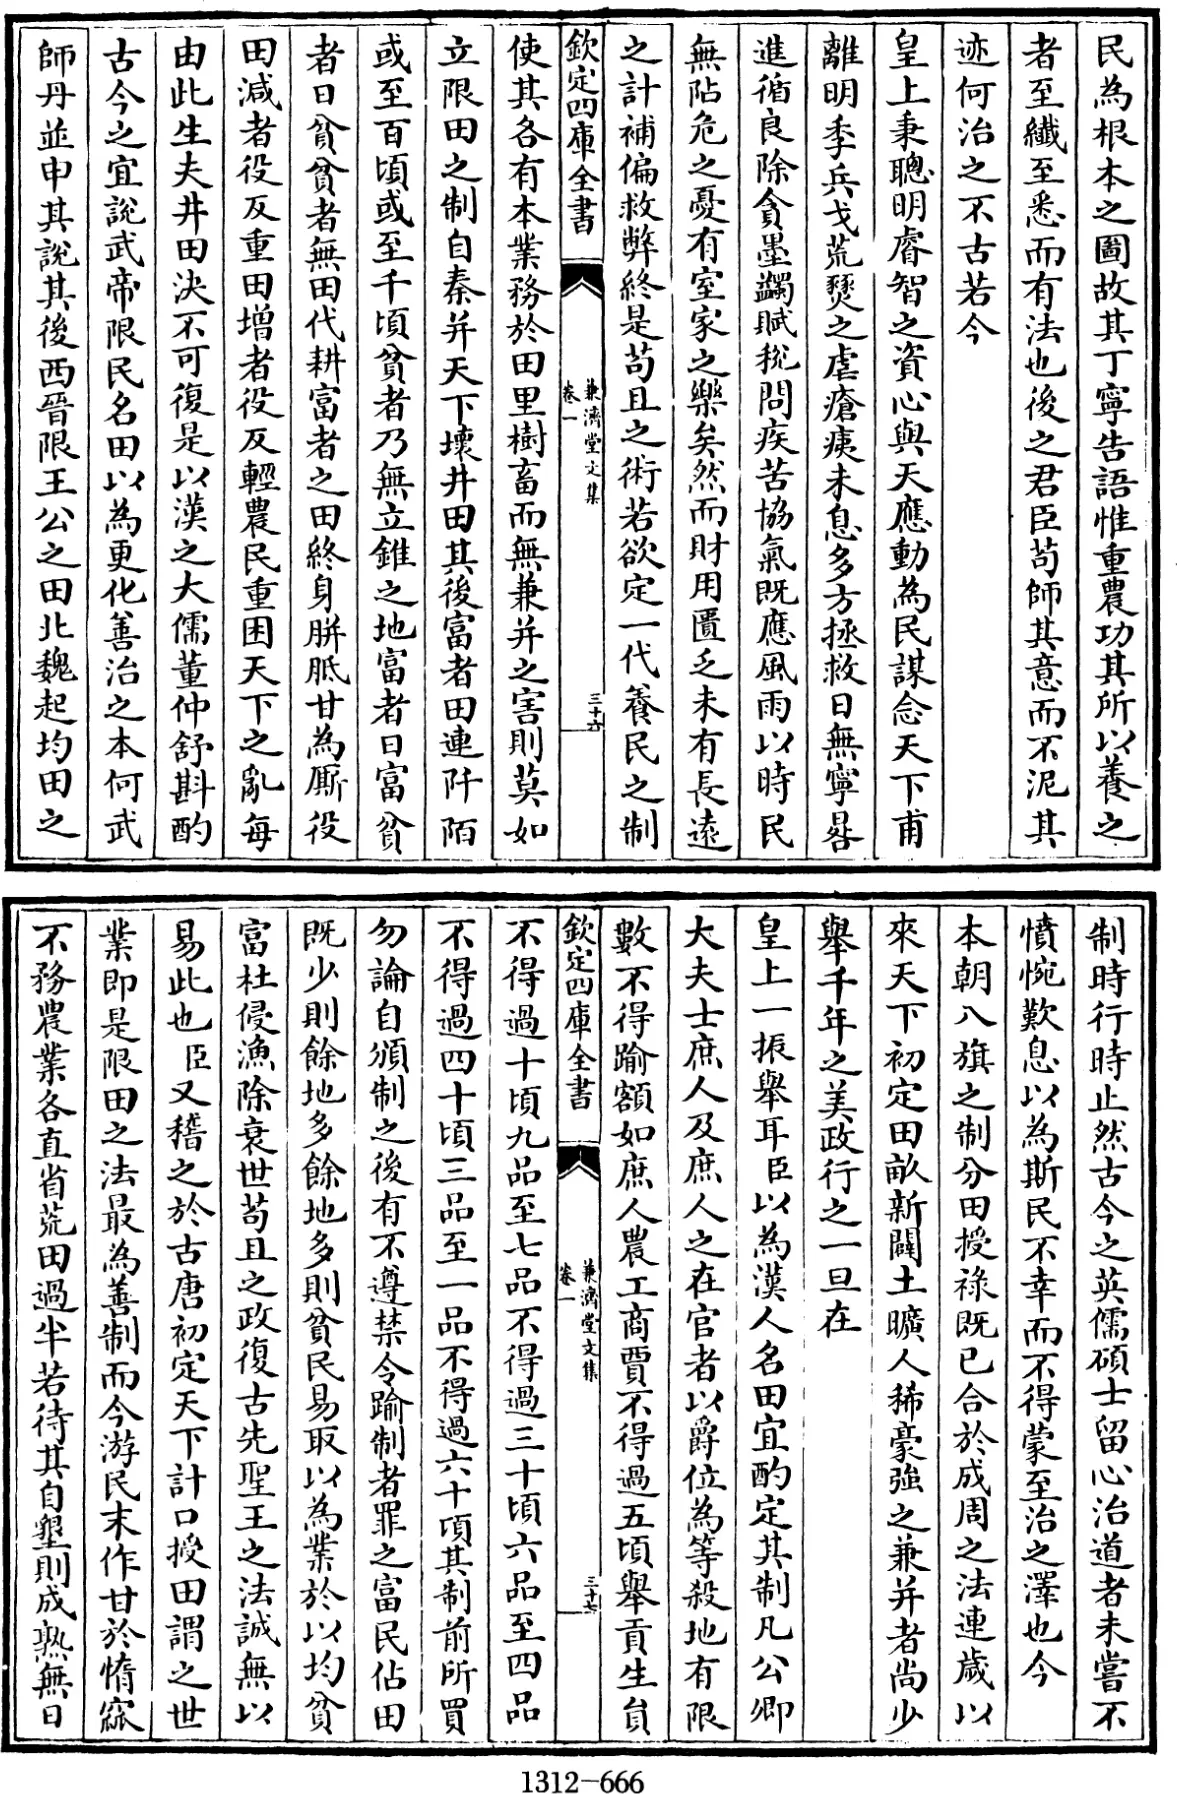 民為根本之圖故其丁寧告語惟重農功其所以養之
者至纖至悉而有法也後之君臣苟師其意而不泥其
迹何治之不古若今
皇上秉聰明睿智之資心與天應動為民謀念天下甫
離明季兵戈荒燹之虐瘡痍未息多方拯救日無寧晷
進循良除貪墨蠲賦稅問疾苦協氣既應風雨以時民
無阽危之憂有室家之樂矣然而財用匱乏未有長遠
之計補偏救弊終是苟且之術若欲定一代養民之制
欽定四庫全書
兼濟堂文集
卷一
三十六
使其各有本業務於田里樹畜而無兼并之害則莫如
立限田之制自秦并天下壞井田其後富者田連阡陌
或至百頃或至千頃貧者乃無立錐之地富者日富貧
者日貧貧者無田代耕富者之田終身胼胝甘為厮役
田減者役反重田增者役反輕農民重困天下之亂每
由此生夫井田決不可復是以漢之大儒董仲舒斟酌
古今之宜説武帝限民名田以為更化善治之本何武
師丹並申其説其後西晉限王公之田北魏起均田之
制時行時止然古今之英儒碩士留心治道者未嘗不
憤惋歎息以為斯民不幸而不得蒙至治之澤也今
本朝八旗之制分田授祿既已合於成周之法連歲以
來天下初定田畝新闢土曠人稀豪強之兼并者尚少
舉千年之美政行之一旦在
皇上一振舉耳臣以為漢人名田宜酌定其制凡公卿
大夫士庶人及庶人之在官者以爵位為等殺地有限
數不得踰額如庶人農工商賈不得過五頃舉貢生員
欽定四庫全書
兼濟堂文集
卷一
三十七
不得過十頃九品至七品不得過三十頃六品至四品
不得過四十頃三品至一品不得過六十項其制前所買
勿論自頒制之後有不遵禁令踰制者罪之富民佔田
既少則餘地多餘地多則貧民易取以為業於以均貧
富杜侵漁除衰世苟且之政復古先聖王之法誠無以
易此也臣又稽之於古唐初定天下計口授田謂之世
業即是限田之法最為善制而今游民末作甘於惰窳
不務農業各直省荒田過半若待其自墾則成熟無日
1312-666